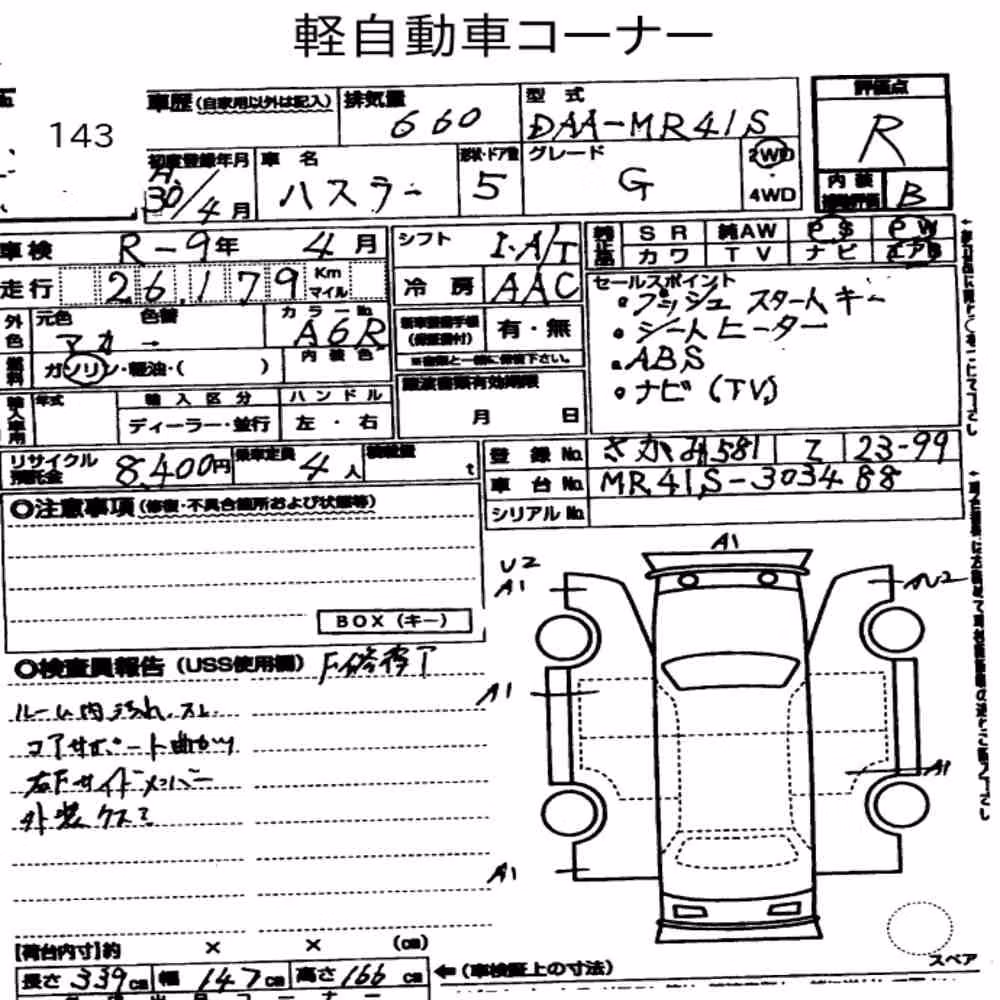 軽自動車コーナー
143
車歴 (自家用以外は記入)
排気量 660
型式 DAA-MR41S
評価点 R
初度登録年月 H.30/4月
車名 ハスラー
形状・ドア数 5
グレード G
2WD ・ 4WD
内装 B
車検 R-9年 4月
シフト I・A/T
純正 SR 純AW PS PW
カワ TV ナビ エアB
走行 26,179 Km マイル
冷房 AAC
セールスポイント
・プッシュスタートキー
・シートヒーター
・ABS
・ナビ (TV)
外色 元色 アカ 色替 →
カラーNo. A6R
内装色
有・無
燃料 ガソリン・軽油・( )
輸入車用 年式 輸入区分 ハンドル
ディーラー・並行 左・右
譲渡書類有効期限
月 日
リサイクル預託金 8,400円
乗車定員 4人
積載量 t
登録No. さがみ581 23-99
車台No. MR41S-303488
シリアルNo.
○注意事項 (修復・不具合箇所および状態等)
BOX (キー)
○検査員報告 (USS使用欄) F修復了
ルーム内汚れ、スレ
コアサポート曲がり
右Fサイドメンバー
外装クスミ
A1
U2
A1
A1
A1
A1
スペア
[荷台内寸] 約 × × (cm)
長さ 339cm 幅 147cm 高さ 166cm
← (車検証上の寸法)